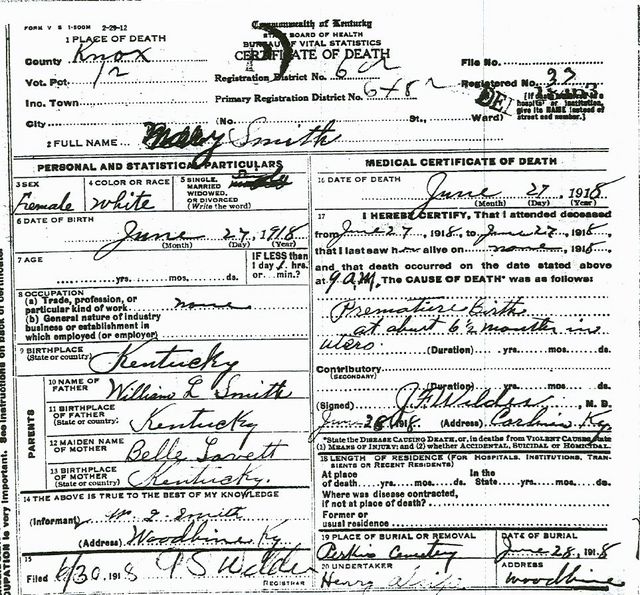 FORM V S 1-500M 2-29-12
Commonwealth of Kentucky
STATE BOARD OF HEALTH
BUREAU OF VITAL STATISTICS
CERTIFICATE OF DEATH
1 PLACE OF DEATH
County Knox
Vot. Pct. 12
Inc. Town
City
Registration District No.
Primary Registration District No.
(No. St., Ward)
File No.
Registered No. 37
[If death occurred in a
hospital or institution,
give its NAME instead of
street and number.]
2 FULL NAME Mary Smith
PERSONAL AND STATISTICAL PARTICULARS
3 SEX
Female
4 COLOR OR RACE
White
5 SINGLE,
MARRIED
WIDOWED,
OR DIVORCED
(Write the word)
6 DATE OF BIRTH
June 27, 1918
(Month) (Day) (Year)
7 AGE
yrs. mos. ds.
IF LESS than
1 day, hrs.
or min.?
8 OCCUPATION
(a) Trade, profession, or
particular kind of work none
(b) General nature of industry
business or establishment in
which employed (or employer)
9 BIRTHPLACE
(State or country) Kentucky
PARENTS
10 NAME OF
FATHER William L Smith
11 BIRTHPLACE
OF FATHER
(State or country) Kentucky
12 MAIDEN NAME
OF MOTHER Belle Lovett
13 BIRTHPLACE
OF MOTHER
(State or country) Kentucky.
14 THE ABOVE IS TRUE TO THE BEST OF MY KNOWLEDGE
(Informant) W L Smith
(Address) Woodbine Ky
15
Filed 6/30, 1918
REGISTRAR
MEDICAL CERTIFICATE OF DEATH
16 DATE OF DEATH
June 27 1918
(Month) (Day) (Year)
17 I HEREBY CERTIFY, That I attended deceased
from June 27, 1918, to June 27, 1918,
that I last saw her alive on none, 1918,
and that death occurred on the date stated above
at 9 AM. The CAUSE OF DEATH* was as follows:
Premature Birth
at about 6½ months in
utero
(Duration) yrs. mos. ds.
Contributory
(SECONDARY)
(Duration) yrs. mos. ds.
(Signed) J F Wilder, M. D.
June 28, 1918. (Address) Corbin Ky.
*State the DISEASE CAUSING DEATH, or, in deaths from VIOLENT CAUSES, state
(1) MEANS OF INJURY; and (2) whether ACCIDENTAL, SUICIDAL or HOMICIDAL.
18 LENGTH OF RESIDENCE (FOR HOSPITALS, INSTITUTIONS, TRAN-
SIENTS OR RECENT RESIDENTS)
At place
of death yrs. mos. ds.
In the
State yrs. mos. ds.
Where was disease contracted,
if not at place of death?
Former or
usual residence
19 PLACE OF BURIAL OR REMOVAL
Perkins Cemetery
DATE OF BURIAL
June 28, 1918
20 UNDERTAKER
Henry
ADDRESS
Woodbine